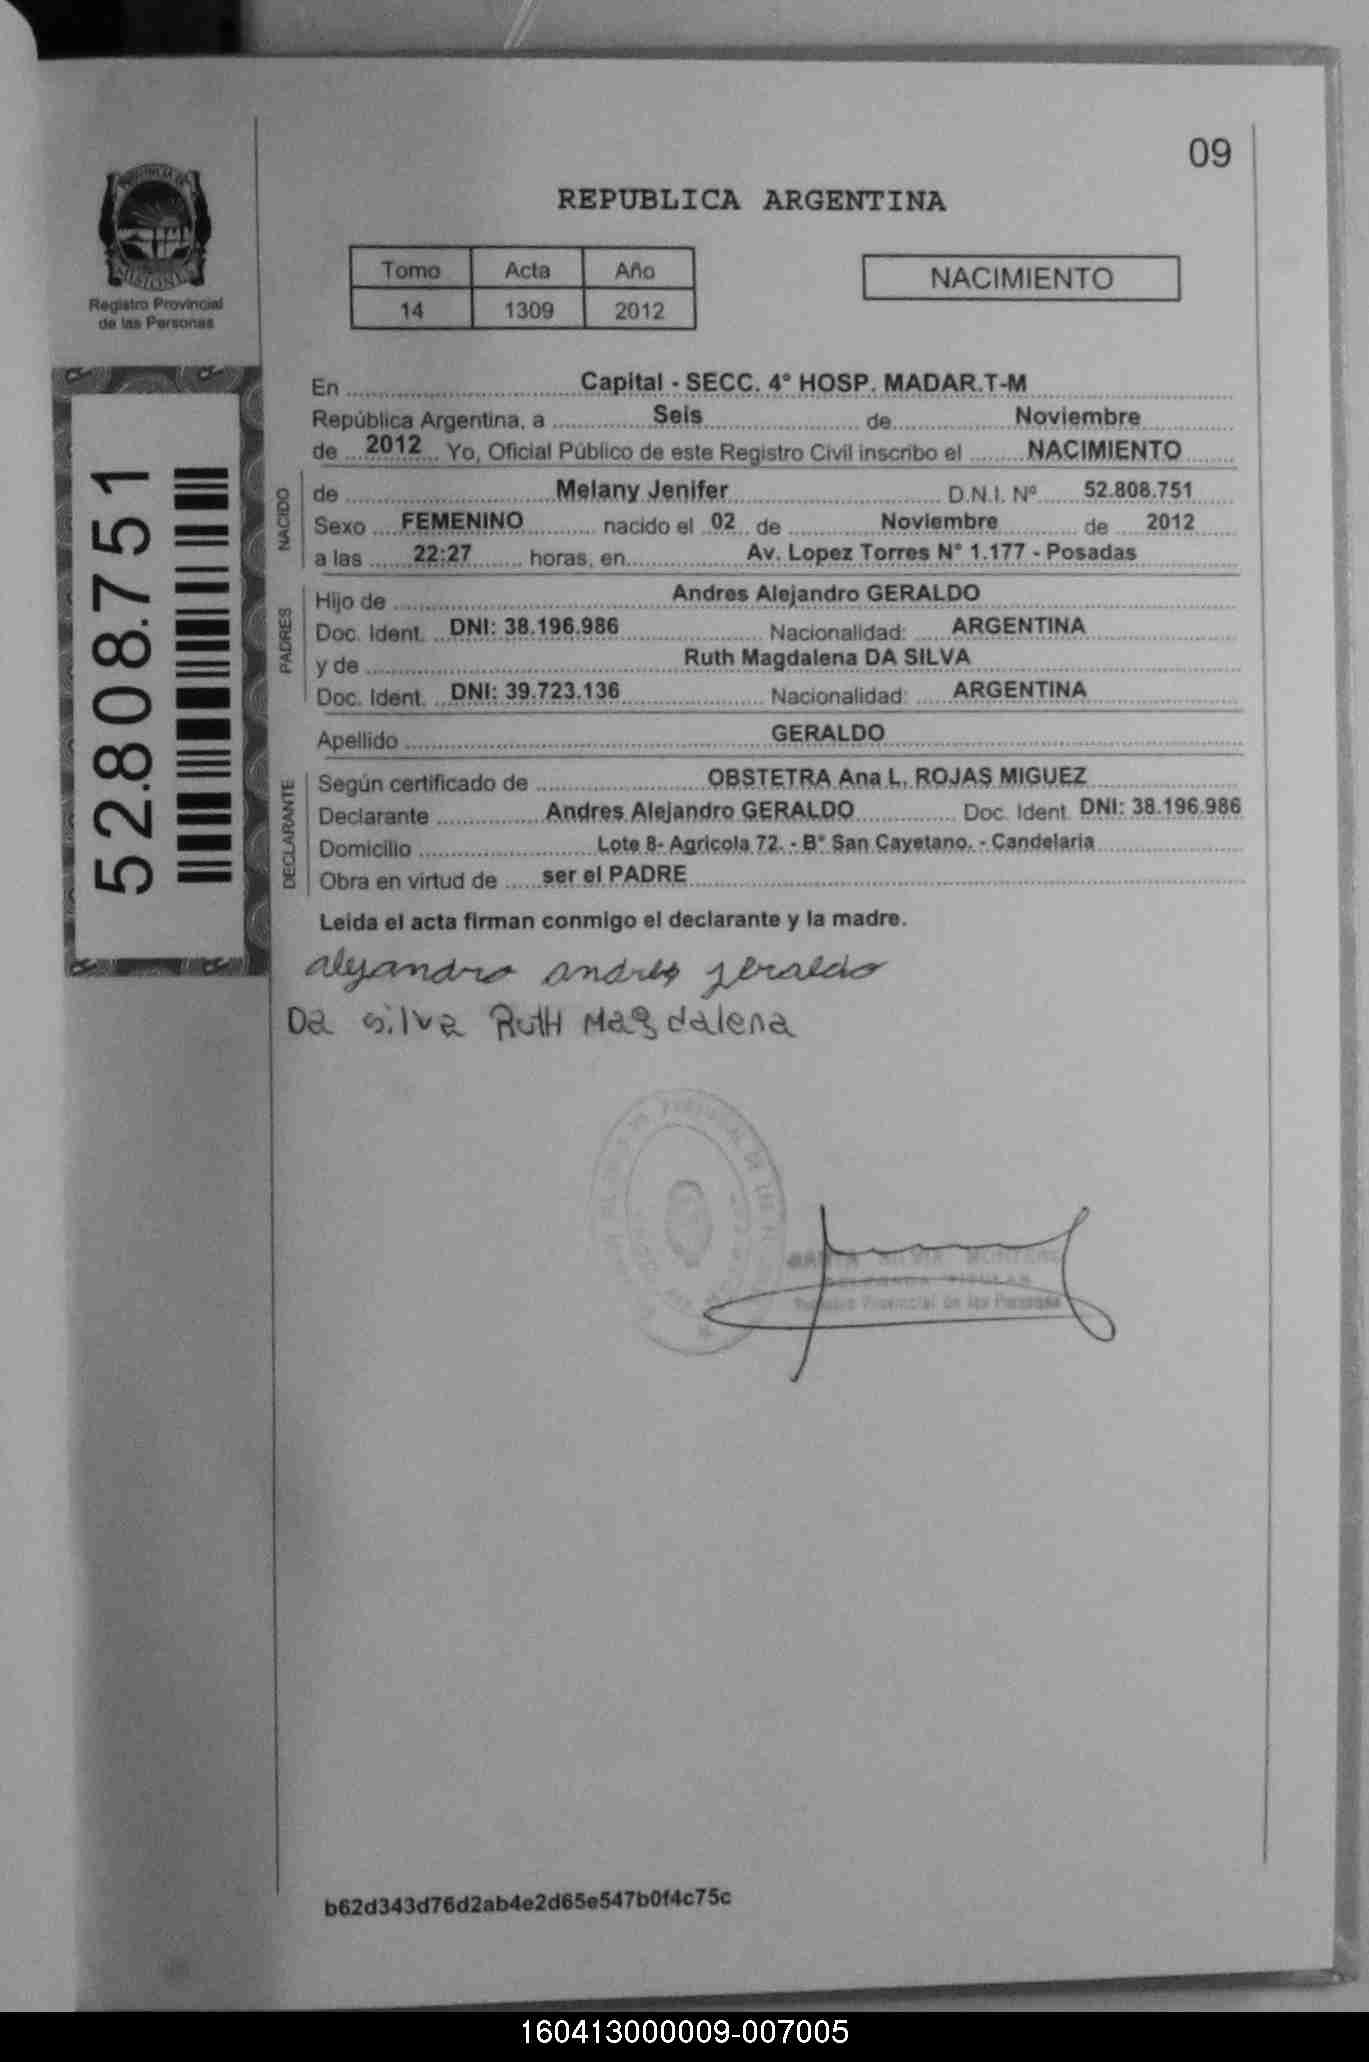 09
PROVINCIA DE
MISIONES
Registro Provincial
de las Personas
REPUBLICA ARGENTINA
Tomo Acta Año
14 1309 2012
NACIMIENTO
52.808.751
En Capital - SECC. 4° HOSP. MADAR.T-M
República Argentina, a Seis de Noviembre
de 2012 Yo, Oficial Público de este Registro Civil inscribo el NACIMIENTO
NACIDO
de Melany Jenifer D.N.I. Nº 52.808.751
Sexo FEMENINO nacido el 02 de Noviembre de 2012
a las 22:27 horas, en Av. Lopez Torres N° 1.177 - Posadas
PADRES
Hijo de Andres Alejandro GERALDO
Doc. Ident. DNI: 38.196.986 Nacionalidad: ARGENTINA
y de Ruth Magdalena DA SILVA
Doc. Ident. DNI: 39.723.136 Nacionalidad: ARGENTINA
Apellido GERALDO
DECLARANTE
Según certificado de OBSTETRA Ana L. ROJAS MIGUEZ
Declarante Andres Alejandro GERALDO Doc. Ident. DNI: 38.196.986
Domicilio Lote 8- Agricola 72. - B° San Cayetano. - Candelaria
Obra en virtud de ser el PADRE
Leida el acta firman conmigo el declarante y la madre.
alejandro andres geraldo
Da silva Ruth Magdalena
SILVIA
Provincial de las Personas
b62d343d76d2ab4e2d65e547b0f4c75c
160413000009-007005